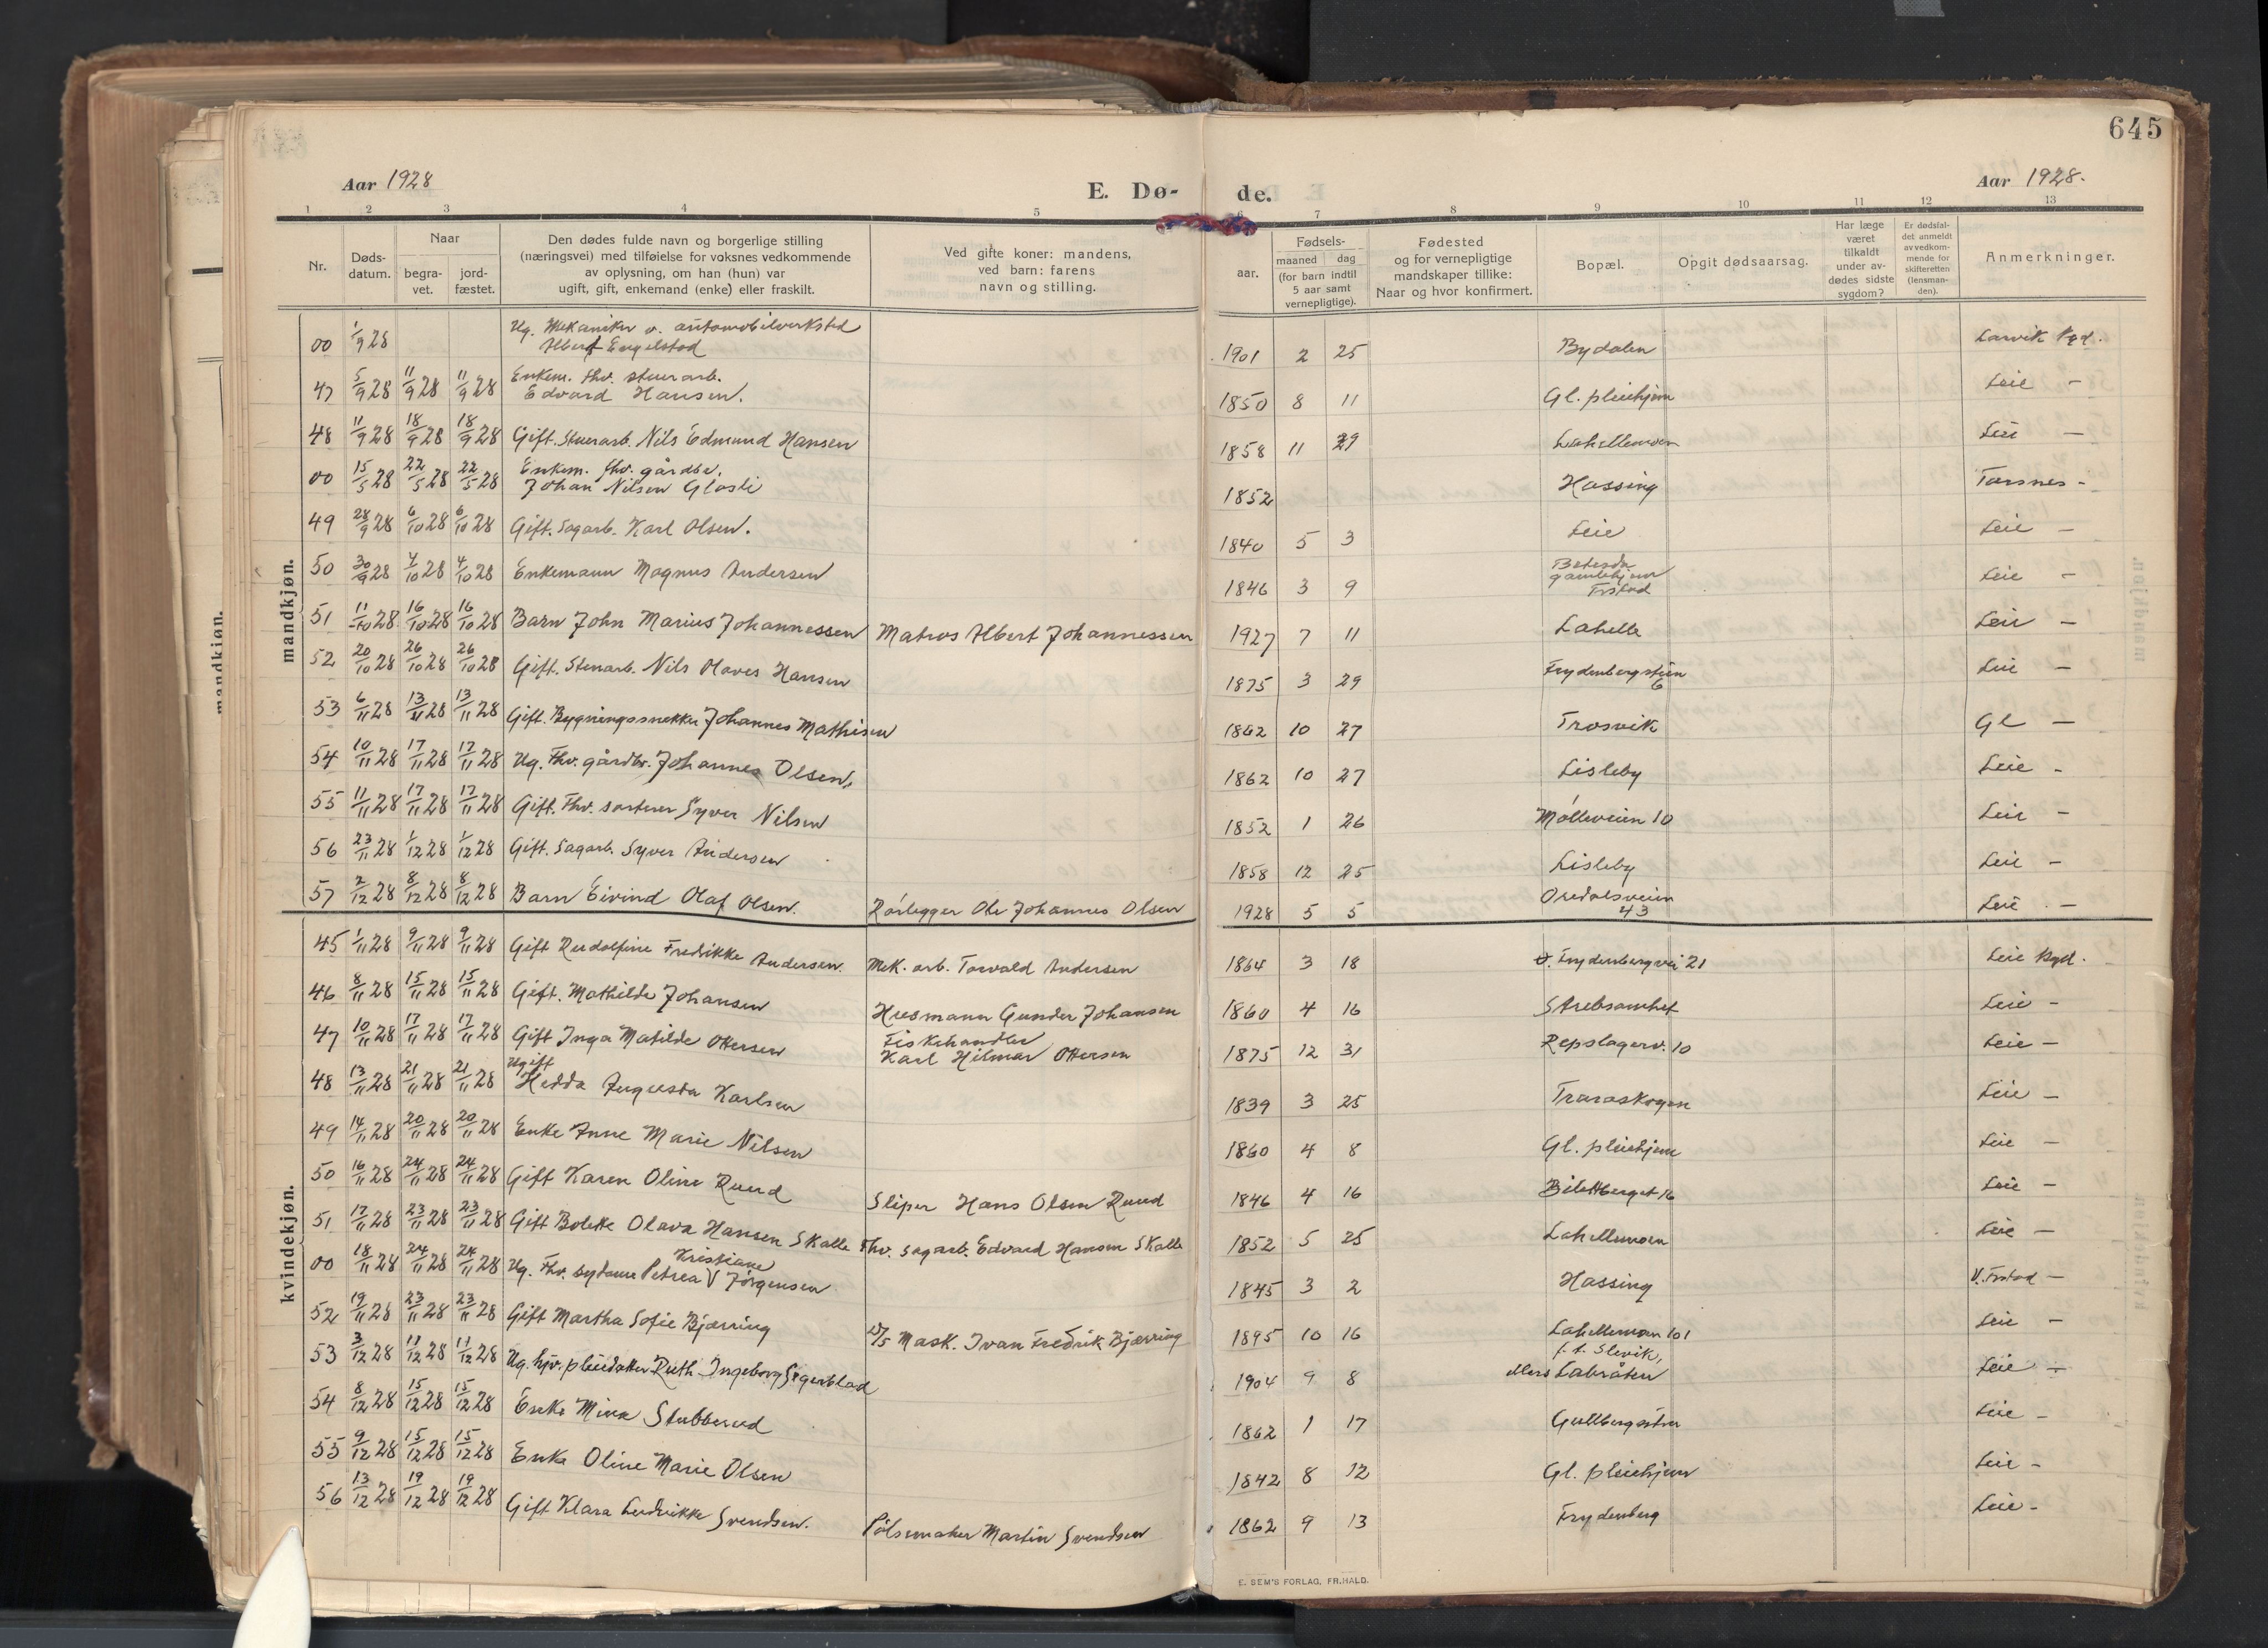 645
Aar 1928
E. Dø-
de.
Aar 1928.
1 2 3 4 5 6 7 8 9 10 11 12 13
Nr.
Døds-
datum.
Naar
begra-
vet.
jord-
fæstet.
Den dødes fulde navn og borgerlige stilling
(næringsvei) med tilføielse for voksnes vedkommende
av oplysning, om han (hun) var
ugift, gift, enkemand (enke) eller fraskilt.
Ved gifte koner: mandens,
ved barn: farens
navn og stilling.
aar.
Fødsels-
maaned dag
(for barn indtil
5 aar samt
vernepligtige).
Fødested
og for vernepligtige
mandskaper tillike:
Naar og hvor konfirmert.
Bopæl.
Opgit dødsaarsag.
Har læge
været
tilkaldt
under av-
dødes sidste
sygdom?
Er dødsfal-
det anmeldt
av vedkom-
mende for
skifteretten
(lensman-
den).
Anmerkninger.
mandkjøn.
mandkjøn.
Ug. Mekaniker v. automobilverksted
00 1/9 28 Albert Engelstad 1901 2 25 Bydalen Larvik Kgd.
Enkem. fhv. stuerarb.
47 5/9 28 11/9 28 11/9 28 Edvard Hansen. 1850 8 11 Gl. pleiehjem Leie —
48 11/9 28 18/9 28 18/9 28 Gift. Stuerarb. Nils Edmund Hansen 1858 11 29 Lahellemoen Leie —
Enkem. fhv. gårdbr.
00 15/5 28 22/5 28 22/5 28 Johan Nilsen Glosli 1852 Hassing Torsnes -
49 28/9 28 6/10 28 6/10 28 Gift. Sagarb. Karl Olsen. 1840 5 3 Leie Leie —
50 30/9 28 4/10 28 4/10 28 Enkemann Magnus Andersen 1846 3 9 Betesda
gamlehjem
Frstad Leie —
51 11/10 28 16/10 28 16/10 28 Barn John Marius Johannessen Matros Albert Johannessen 1927 7 11 Lahelle Leie —
52 20/10 28 26/10 28 26/10 28 Gift. Stenarb. Nils Olaves Hansen 1875 3 29 Frydenbergsteien
6 Leie —
53 6/11 28 13/11 28 13/11 28 Gift. Bygningssnekker Johannes Mathisen 1862 10 27 Trosvik Gl —
54 10/11 28 17/11 28 17/11 28 Ug. Fhv. gårdbr. Johannes Olsen. 1862 10 27 Lisleby Leie -
55 11/11 28 17/11 28 17/11 28 Gift. Fhv. sorterer Syver Nilsen 1852 1 26 Mølleveien 10 Leie —
56 23/11 28 1/12 28 1/12 28 Gift. Sagarb. Syver Andersen 1858 12 25 Lisleby Leie —
57 2/12 28 8/12 28 8/12 28 Barn Eivind Olaf Olsen. Rørlegger Ole Johannes Olsen 1928 5 5 Oredalsveien
43 Leie —
kvindekjøn.
45 1/11 28 9/11 28 9/11 28 Gift Rudolfine Fredrikke Andersen. Mek. arb. Torvald Andersen 1864 3 18 Ø. Frydenbergvei 21 Leie Kgd.
46 8/11 28 15/11 28 15/11 28 Gift. Mathilde Johansen Husmann Gunder Johansen 1860 4 16 Strebsomhet Leie -
47 10/11 28 17/11 28 17/11 28 Gift Inga Matilde Ottersen Fiskehandler
Karl Hilmar Ottersen 1875 12 31 Repslagerv. 10 Leie —
Ugift
48 13/11 28 21/11 28 21/11 28 Hedda Augusta Karlsen 1839 3 25 Traraskogen Leie —
49 14/11 28 20/11 28 20/11 28 Enke Anne Marie Nilsen 1860 4 8 Gl. pleiehjem Leie —
50 16/11 28 24/11 28 24/11 28 Gift Karen Oline Ruud Sliper Hans Olsen Ruud 1846 4 16 Bilettberget 16 Leie —
51 17/11 28 23/11 28 23/11 28 Gift Bolette Olava Hansen Skalle Fhv. sagarb. Edvard Hansen Skalle 1852 5 25 Lahellemoen Leie —
Kristiane
00 18/11 28 24/11 28 24/11 28 Ug. Fhv. sydame Petrea V Jørgensen 1845 3 2 Hassing V. Frstad —
52 19/11 28 23/11 28 23/11 28 Gift Martha Sofie Bjærring D/S Mask. Ivan Fredrik Bjærring 1895 10 16 Lahellemoen 101 Leie —
53 3/12 28 11/12 28 11/12 28 Ug. hjv. pleiedatter Ruth Ingeborg Segerblad 1904 9 8 f. t. Slevik,
ellers Labråten Leie —
54 8/12 28 15/12 28 15/12 28 Enke Mina Stubberud 1862 1 17 Gullbergsstrø Leie -
55 9/12 28 15/12 28 15/12 28 Enke Oline Marie Olsen 1842 8 12 Gl. pleiehjem Leie -
56 13/12 28 19/12 28 19/12 28 Gift Klara Ludvikke Svendsen. Pølsemaker Martin Svendsen 1862 9 13 Frydenberg Leie -
E. SEM'S FORLAG, FR.HALD.